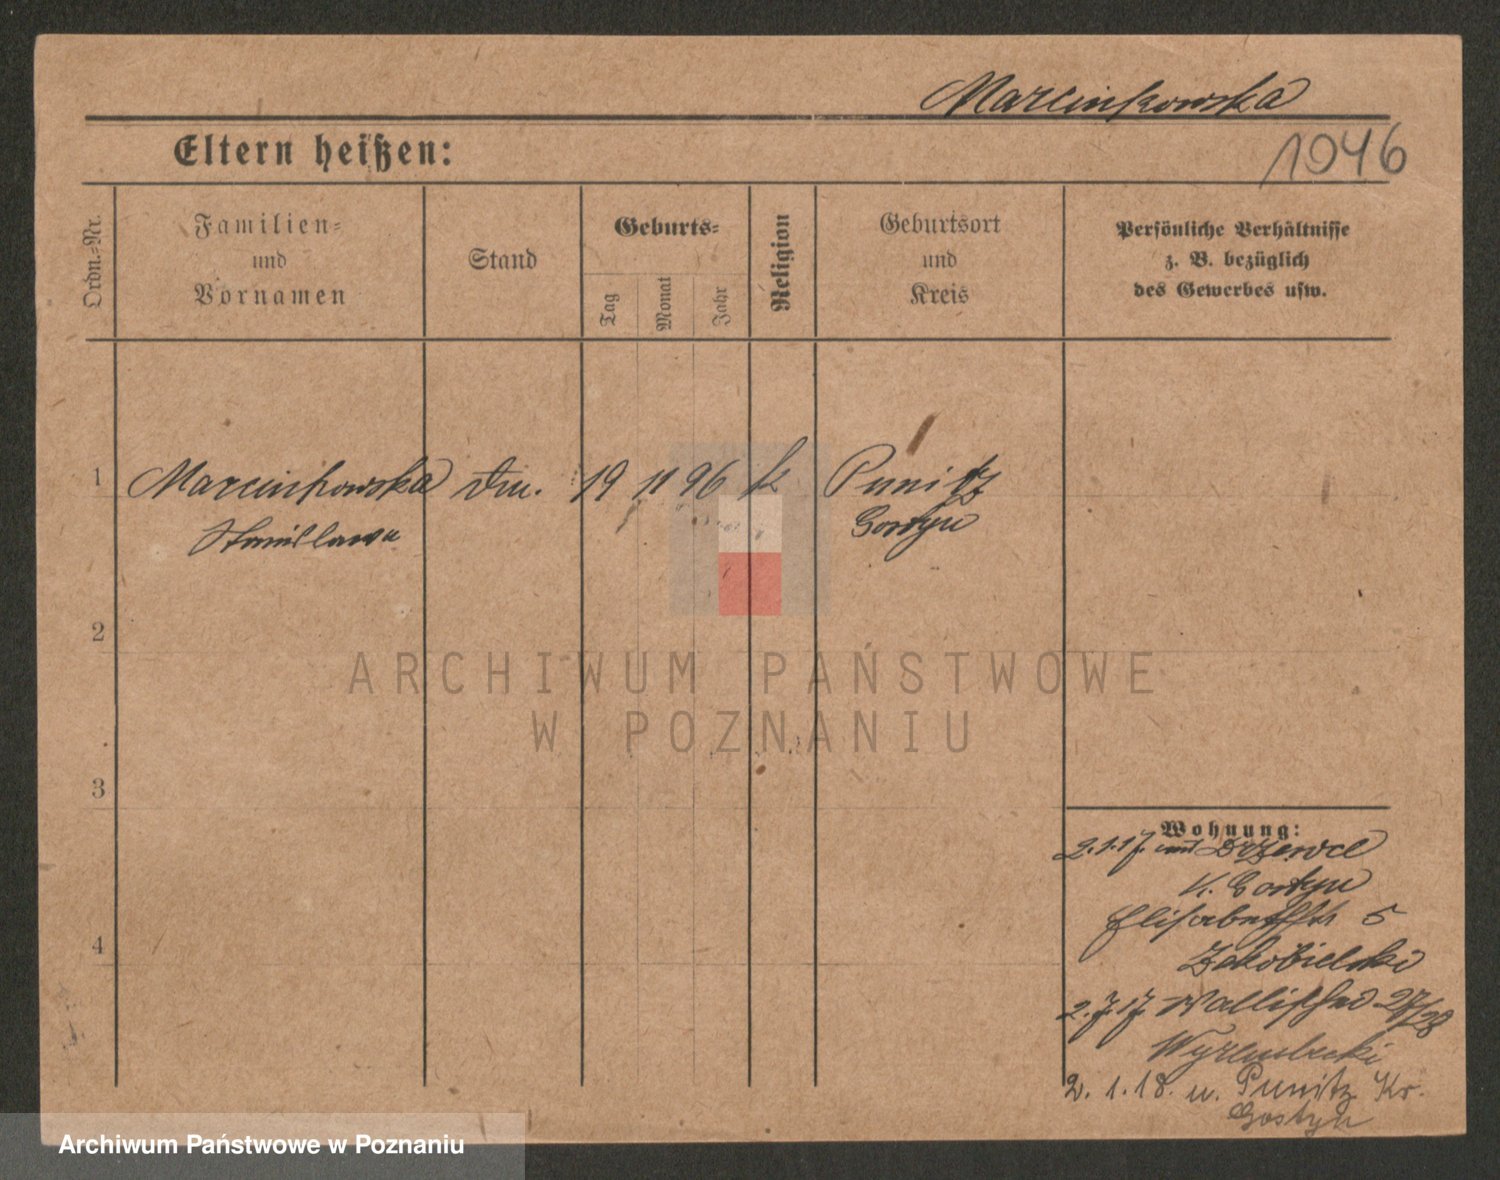 Marcinkowska
Eltern heißen:
1046
Ordn.-Nr.
Familien-
und
Vornamen
Stand
Geburts-
Tag
Monat
Jahr
Religion
Geburtsort
und
Kreis
Persönliche Verhältnisse
z. B. bezüglich
des Gewerbes usw.
1 Marcinkowska 19 11 96 k Punitz
Stanislawa Gostyn
2
ARCHIWUM PAŃSTWOWE
W POZNANIU
3
Wohnung:
2.1.17. Drzewce
K. Gostyn
Elisabethstr 5
Zakobielski
4
2.7.17. Wallischei 27/28
2.1.18. n. Punitz Kr.
Gostyn
Archiwum Państwowe w Poznaniu